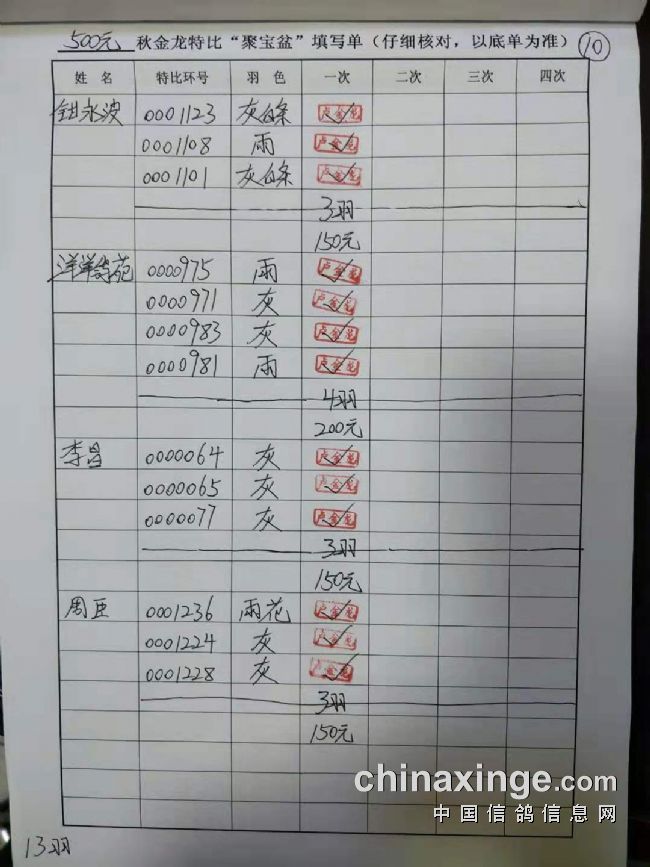 500元 秋金龙特比“聚宝盆”填写单（仔细核对，以底单为准） 10
姓 名 特比环号 羽 色 一次 二次 三次 四次
钽永波 0001123 灰白条 卢金龙
0001108 雨 卢金龙
0001101 灰白条 卢金龙
3羽
150元
洋洋鸽苑 0000975 雨 卢金龙
0000971 灰 卢金龙
0000983 灰 卢金龙
0000981 雨 卢金龙
4羽
200元
李昌 0000064 灰 卢金龙
0000065 灰 卢金龙
0000077 灰 卢金龙
3羽
150元
周臣 0001236 雨花 卢金龙
0001224 灰 卢金龙
0001228 灰 卢金龙
3羽
150元
chinaxinge.com
中国信鸽信息网
13羽